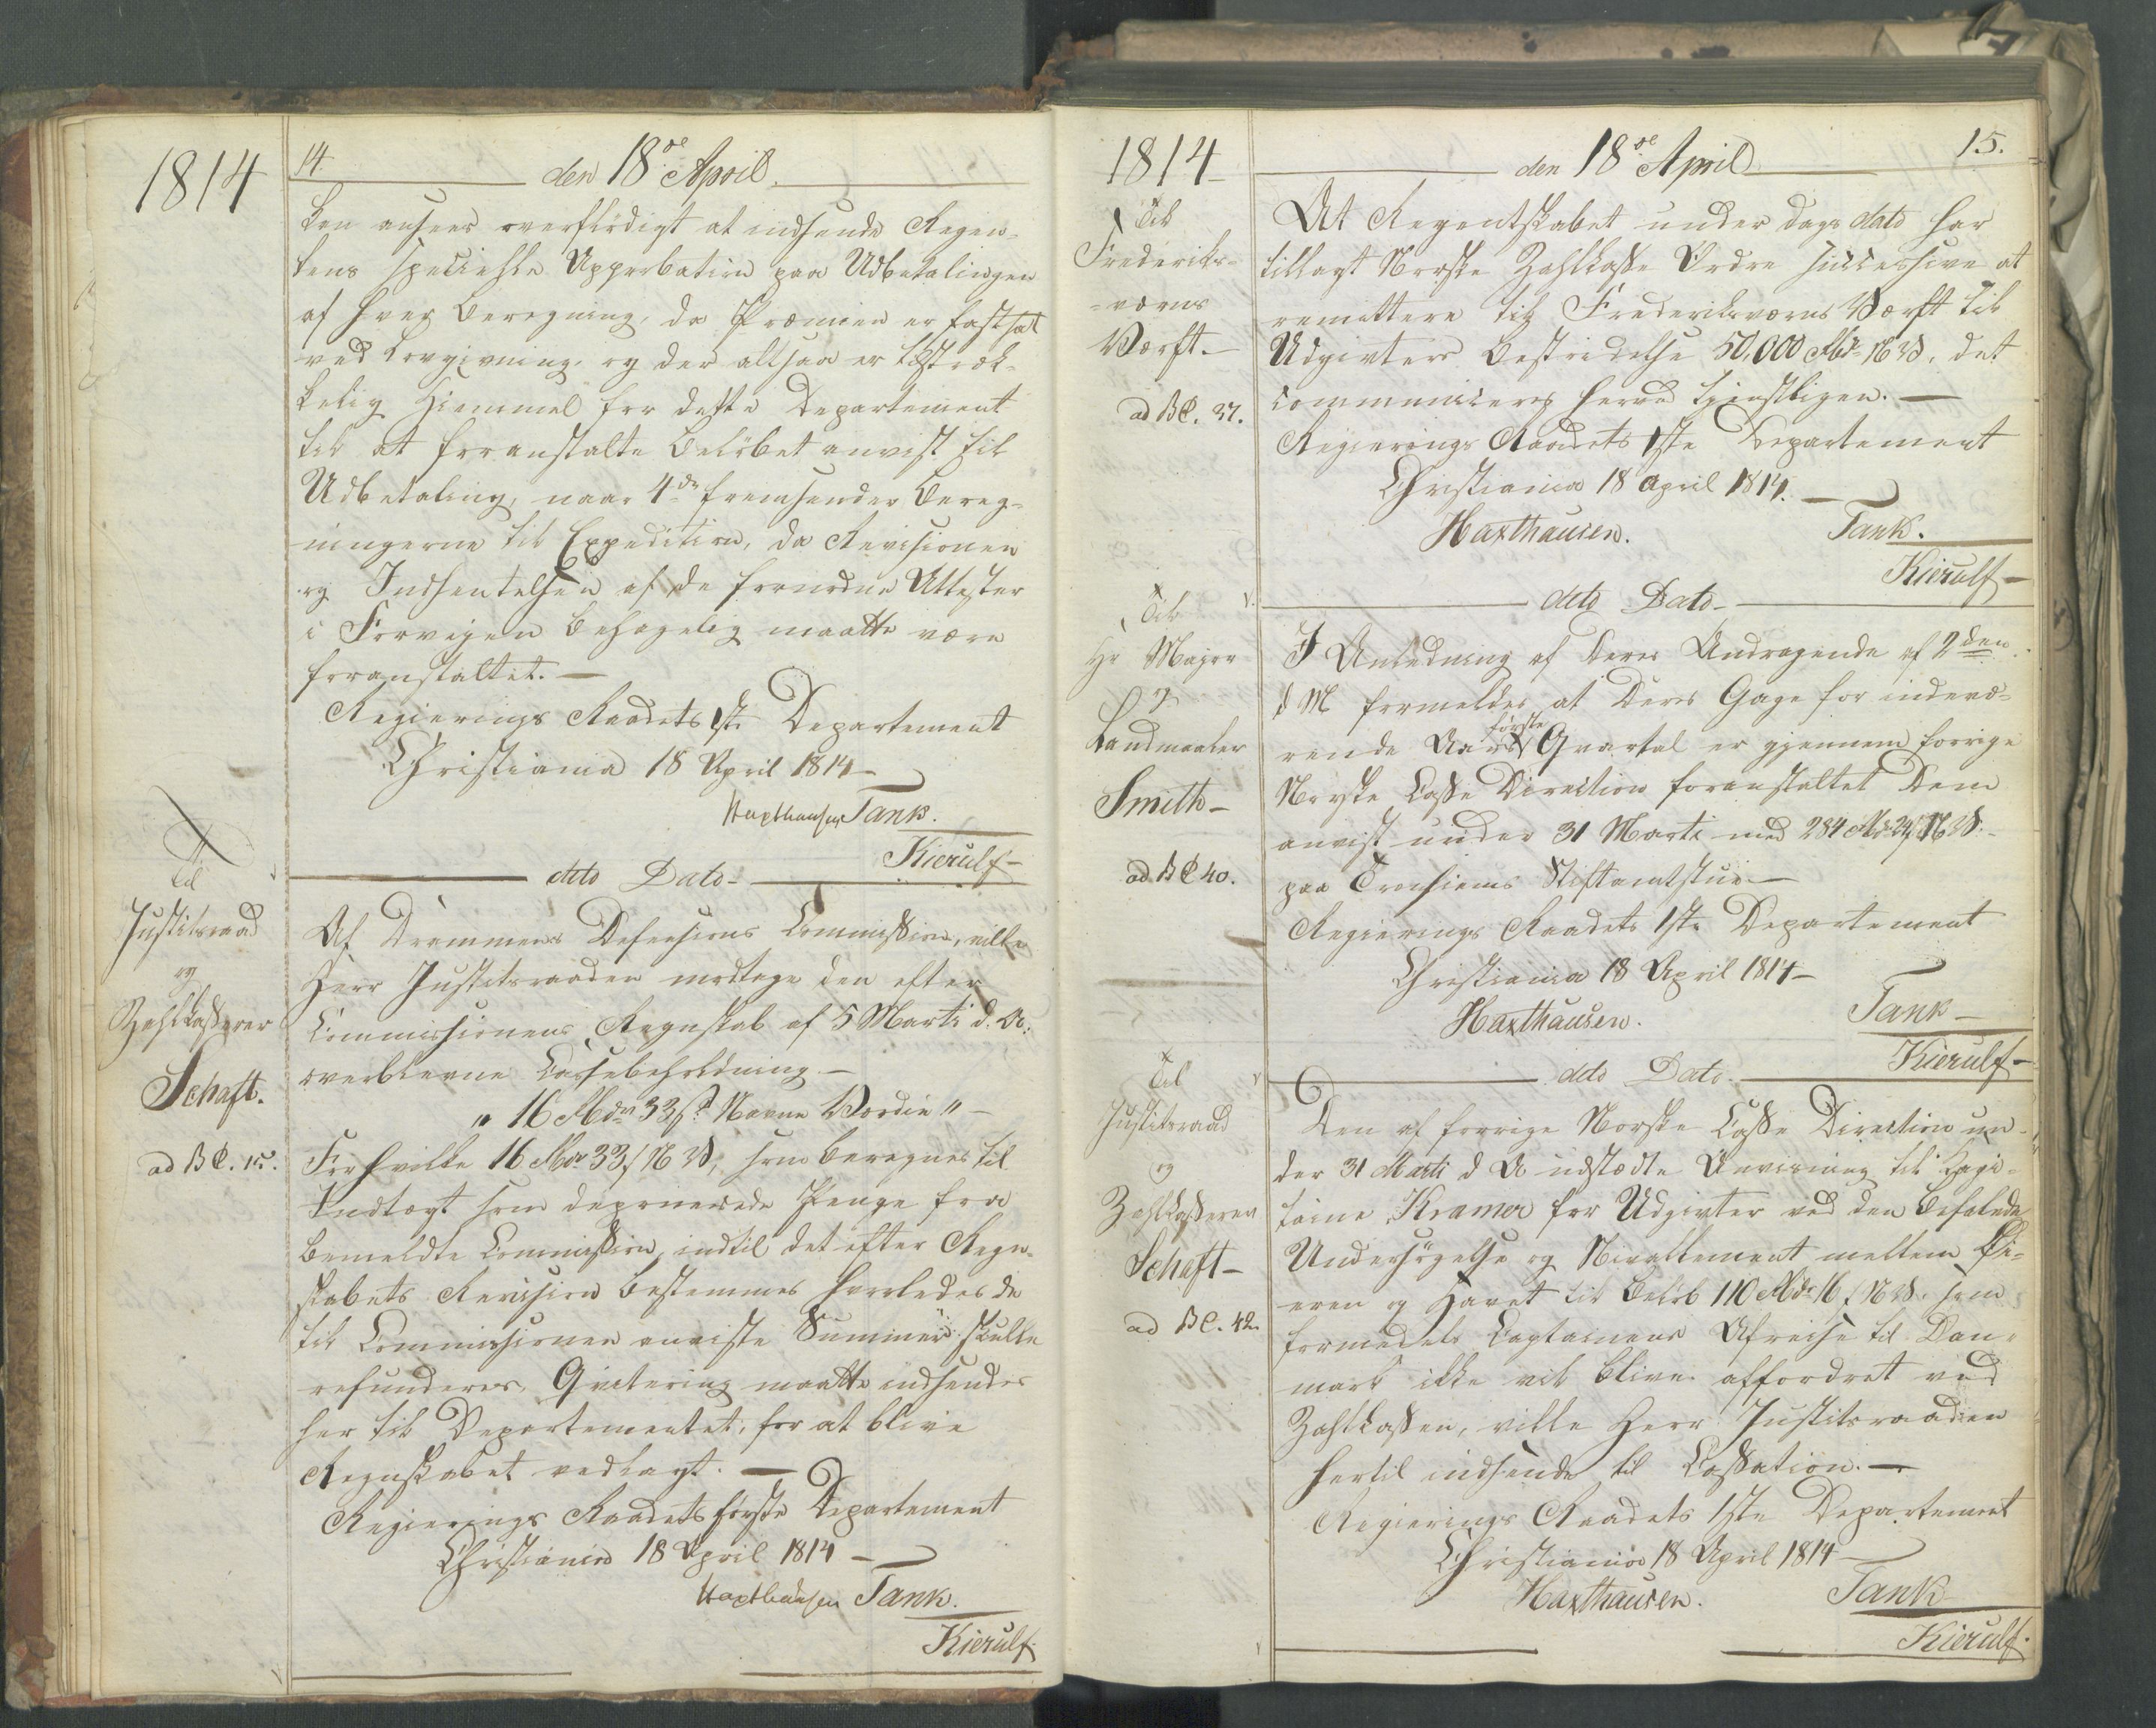 1814
14.
den 18de April.
ken ansees overflødigt at indsende Regen-
tens specielle Approbation paa Udbetalingen
af hver Beregning, da Præmien er fastsat
ved Lovgivning, og der altsaa er tilstræk-
kelig Hiemmel for dette Departement
til at foranstalte Beløbet anvist til
Udbetaling, naar 4de fremsender Bereg-
ningerne til Expedition, da Revisionen
og Indhentelsen af de fornødne Attester
i Forveien behagelig maatte være
foranstaltet. —
Regierings Raadets 1ste Departement
Christiania 18 April 1814 —
Haxthausen Tank.
Kierulf —
dito Dato —
Til
Justitsraad
og
Zahlkasserer
Schaft.
ad B C. 15.
Af Drammens Defensions Commission, ville
Herr Justitsraaden modtage den efter
Commissionens Regnskab af 5 Marti d. A:
overblevne Cassebeholdning —
" 16 Rbdr 33 s. Navne Værdie " —
For hvilke 16 Rbdr 33 s N V, som beregnes til
Indtægt som deponerede Penge fra
bemeldte Commission, indtil det efter Regn-
skabets Revision bestemmes hvorledes de
til Commissionen anviste Summer skulle
refunderes, Qvitering maatte indsendes
her til Departementet, for at blive
Regnskabet vedlagt. —
Regierings Raadets første Departement
Christiania 18 April 1814 —
Haxthausen Tank.
Kierulf.
1814
15.
den 18de April
Til
Frederiks-
-værns
Værft. —
ad B C. 37.
At Regentskabet under dags dato har
tillagt Norske Zahlkasse Ordre successive at
remittere til Frederiksværns Værft til
Udgivters Bestridelse 50,000 Rbdr N V, det
communiceres herved tjenstligen. —
Regierings Raadets 1ste Departement
Christiania 18 April 1814. —
Haxthausen. Tank.
Kierulf —
dito Dato —
Til
Hr Major
og
Landmaaler
Smith —
ad B C 40.
I Anledning af Deres Andragende af 2den
d M formeldes at Deres Gage for indevæ-
rende Aars første Qvartal er gjennem forrige
Norske Casse Direction foranstaltet Dem
anvist under 31 Marti med 284 Rbd 24 s N V. —
paa Tronhiems Stiftamtstue —
Regierings Raadets 1ste Departement
Christiania 18 April 1814 —
Haxthausen. Tank —
Kierulf —
dito Dato —
Til
Justitsraad
og
Zahlkasseren
Schaft —
ad B C. 42.
Den af forrige Norske Casse Direction un-
der 31 Marti d A udstædte Anvisning til Capi-
taine Kramer for Udgivter ved den befalede
Undersøgelse og Nivellement mellem Øi-
eren og Havet til Beløb 110 Rbdr 16 s N V. som
formedelst Captainens Afreise til Dan-
mark ikke vil blive affordret ved
Zahlkassen, ville Herr Justitsraaden
hertil indsende til Cassation. —
Regierings Raadets 1ste Departement
Christiania 18 April 1814 —
Haxthausen. Tank
Kierulf.